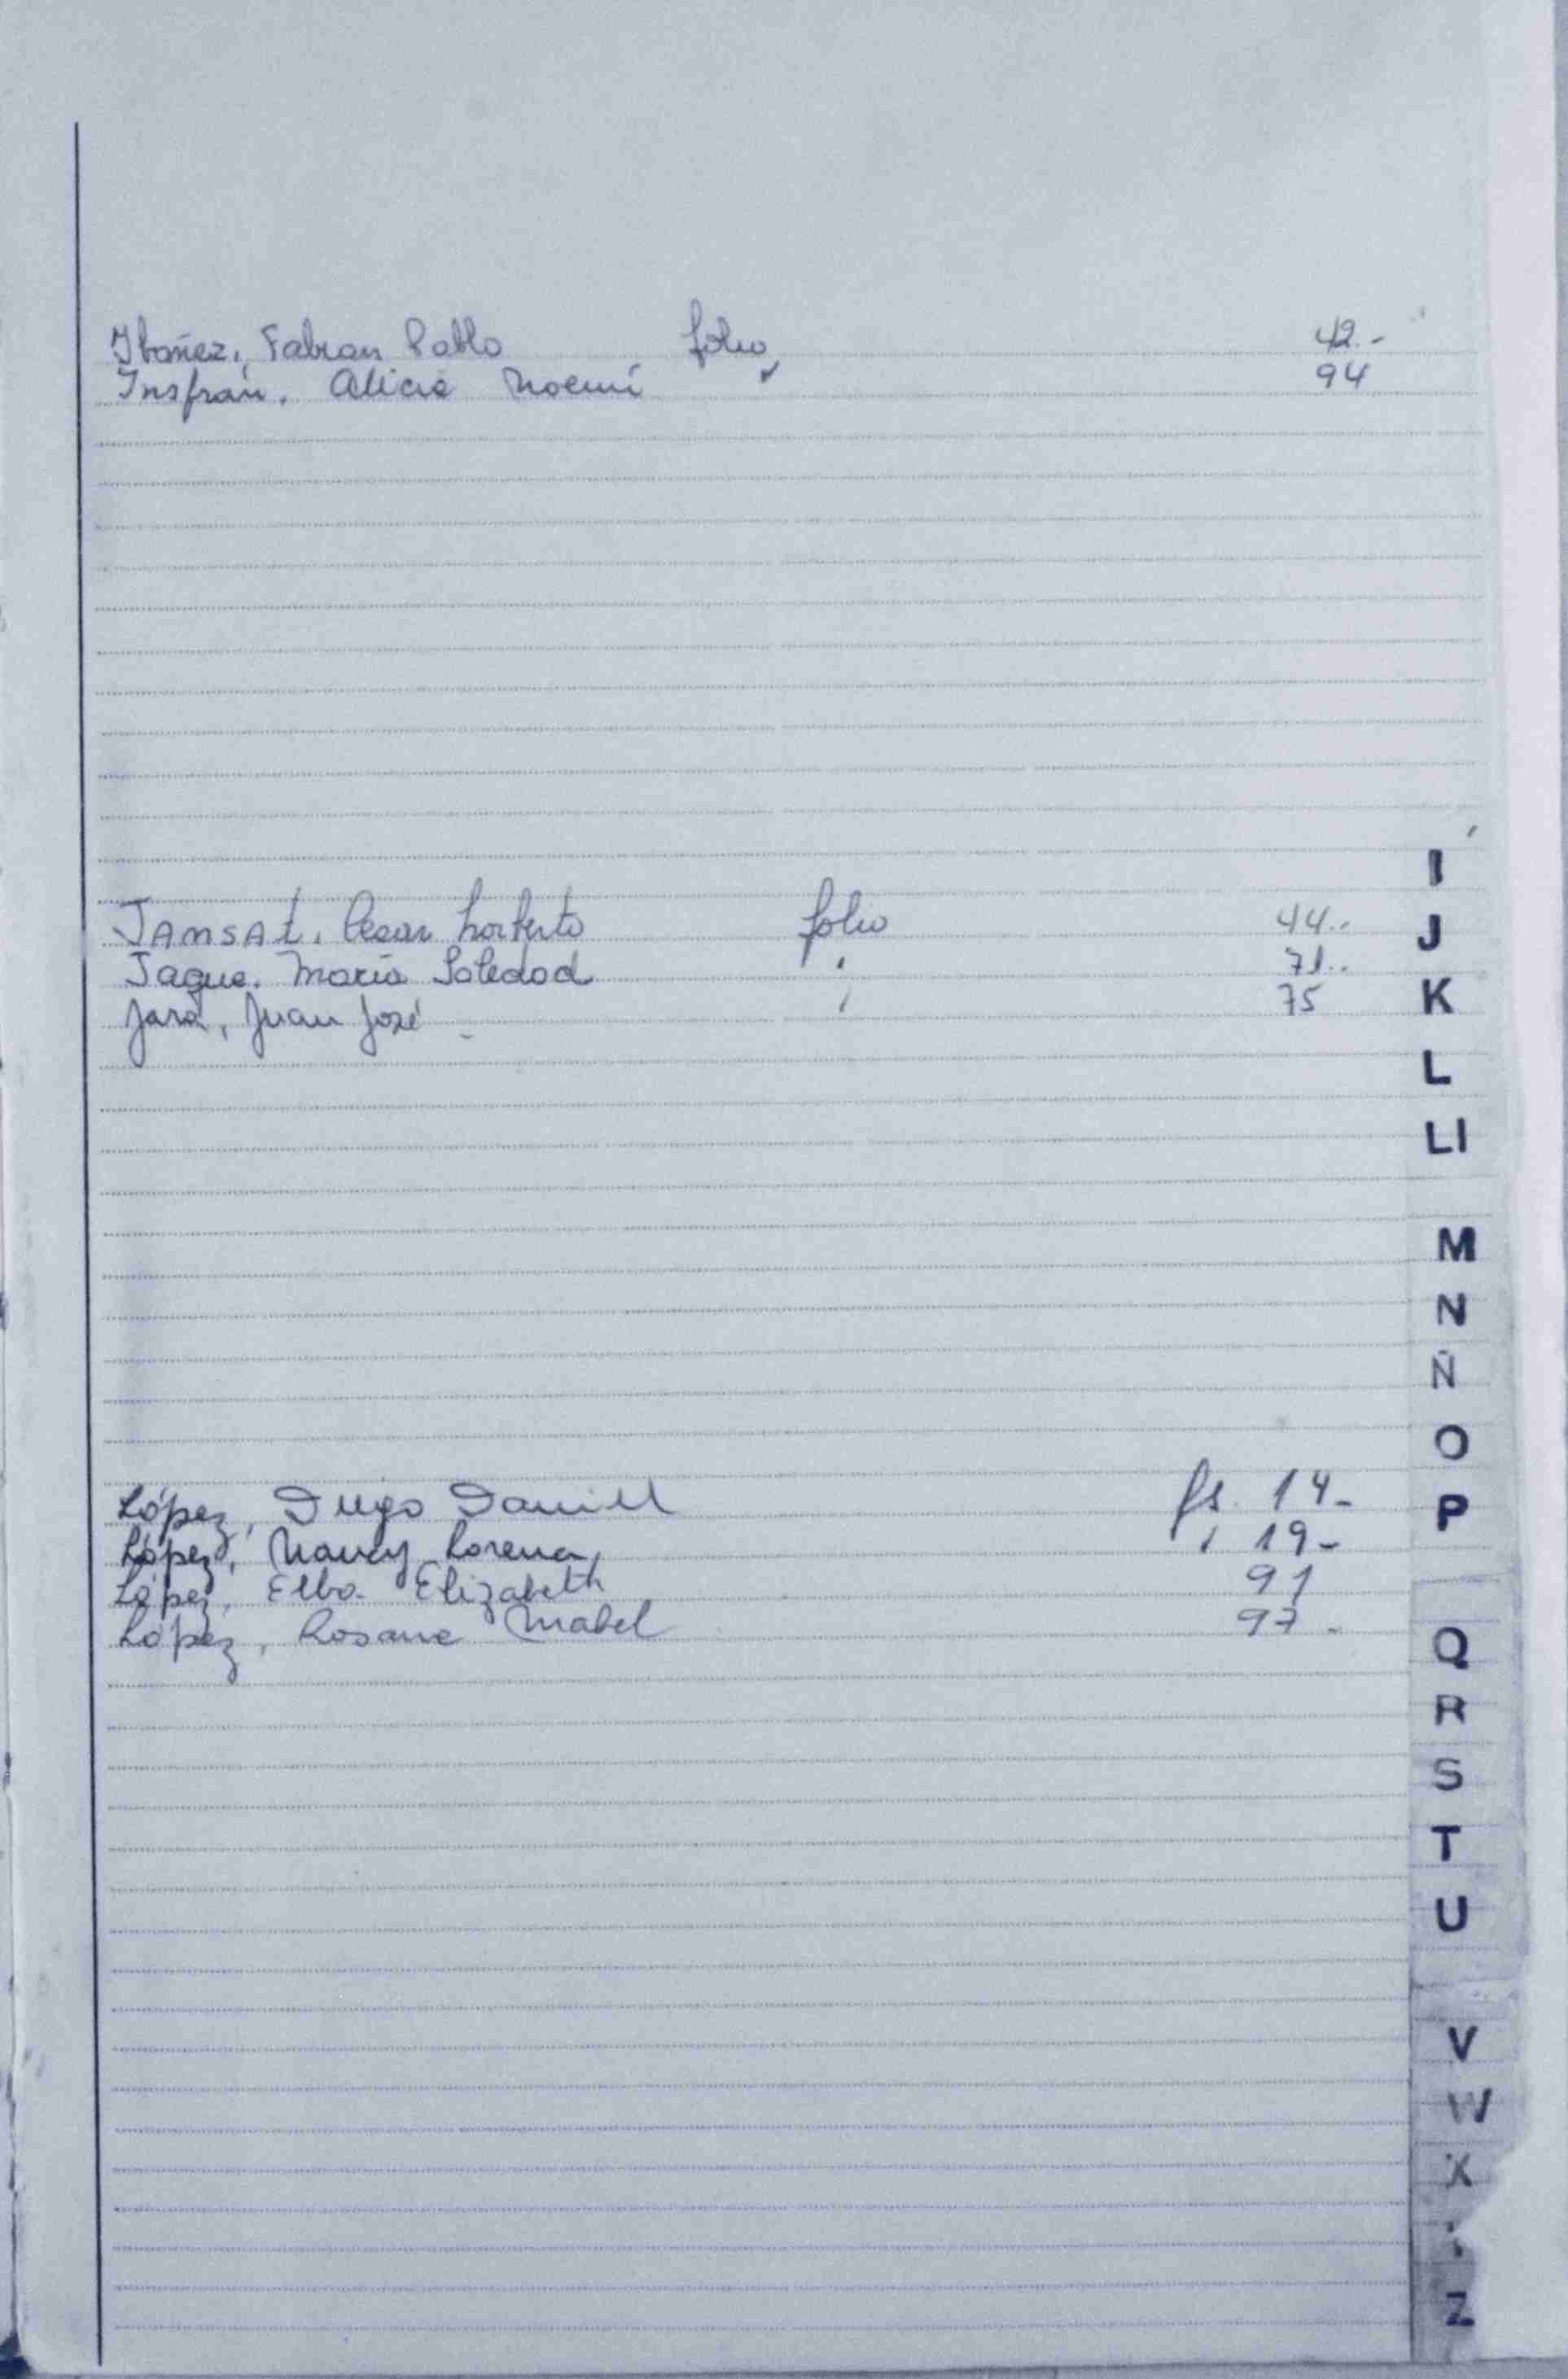 Ibañez, Fabian Pablo folio 42.-
Insfrán, Alicia Noemí 94
JAMSAt. Cesar Norberto folio 44..
Jaque. María Soledad 71..
Jara, Juan José 75
López, Diego Daniel fs. 14-
López, Nancy Lorena, 19-
López, Elba Elizabeth 91
López, Rosana Mabel 97-
I
J
K
L
Ll
M
N
Ñ
O
P
Q
R
S
T
U
V
W
X
Z